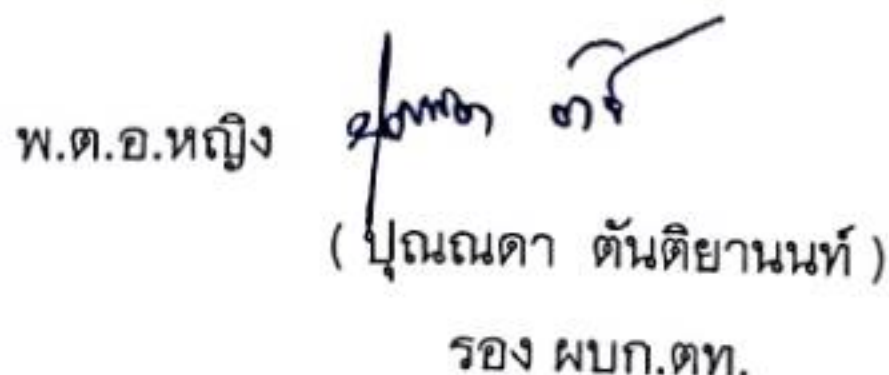 พ.ต.อ.หญิง
( ปุณณดา ตันติยานนท์ )
รอง ผบก.ตท.